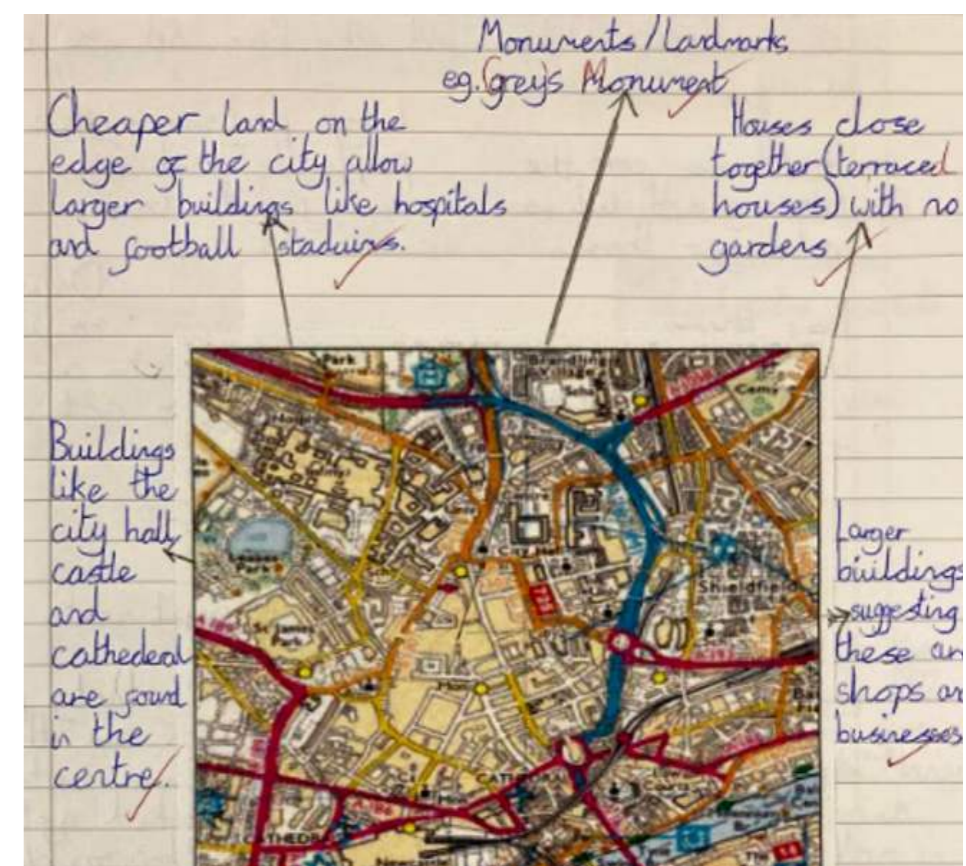 Monuments/Landmarks
eg. Grey's Monument
Cheaper land on the
edge of the city allow
larger buildings like hospitals
and football staduins.
Houses close
together (terraced
houses) with no
gardens
Buildings
like the
city hall,
castle
and
cathederal
are found
in the
centre.
Larger
buildings
suggesting
these are
shops an
businesses
Park
Brandling
Village
Cemy
City Hall
Shieldfield
St James
Park
Mon
CATHEDRAL
CATHEDRAL
Newcastle